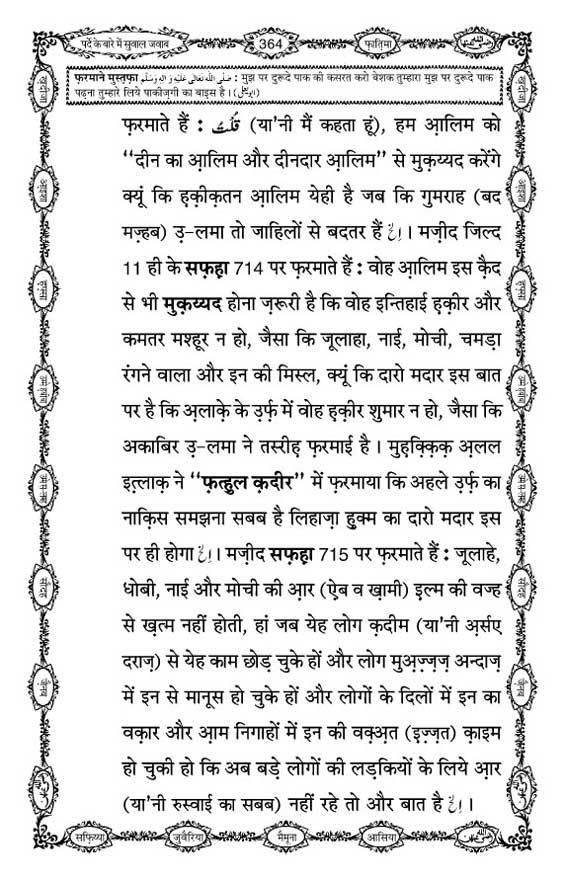 पर्दे के बारे में सुवाल जवाब
364
फ़ातिमा
फ़रमाने मुस्तफ़ा صَلَّى اللهُ تَعَالٰى عَلَيْهِ وَاٰلِهٖ وَسَلَّم : मुझ पर दुरूदे पाक की कसरत करो बेशक तुम्हारा मुझ पर दुरूदे पाक
पढ़ना तुम्हारे लिये पाकीज़गी का बाइस है । (ابو یعلی)
फ़रमाते हैं : قُلْتُ (या'नी मैं कहता हूं), हम आ़लिम को
‘‘दीन का आ़लिम और दीनदार आ़लिम’’ से मुक़य्यद करेंगे
क्यूं कि ह़क़ीक़तन आ़लिम येही है जब कि गुमराह (बद
मज़्हब) उ़-लमा तो जाहिलों से बदतर हैं اِلخ । मज़ीद जिल्द
11 ही के सफ़ह़ा 714 पर फ़रमाते हैं : वोह आ़लिम इस क़ैद
से भी मुक़य्यद होना ज़रूरी है कि वोह इन्तिहाई ह़क़ीर और
कमतर मश्हूर न हो, जैसा कि जूलाहा, नाई, मोची, चमड़ा
रंगने वाला और इन की मिस्ल, क्यूं कि दारो मदार इस बात
पर है कि अ़लाक़े के उ़र्फ़ में वोह ह़क़ीर शुमार न हो, जैसा कि
अकाबिर उ़-लमा ने तस्रीह़ फ़रमाई है । मुह़क़्क़िक़ अ़लल
इत़्लाक़ ने ‘‘फ़त्ह़ुल क़दीर’’ में फ़रमाया कि अहले उ़र्फ़ का
नाक़िस समझना सबब है लिहाज़ा ह़ुक्म का दारो मदार इस
पर ही होगा اِلخ । मज़ीद सफ़ह़ा 715 पर फ़रमाते हैं : जूलाहे,
धोबी, नाई और मोची की आ़र (ऐ़ब व ख़ामी) इ़ल्म की वज्ह
से ख़त्म नहीं होती, हां जब येह लोग क़दीम (या'नी अ़र्सए
दराज़) से येह काम छोड़ चुके हों और लोग मुअ़ज़्ज़ज़ अन्दाज़
में इन से मानूस हो चुके हों और लोगों के दिलों में इन का
वक़ार और आ़म निगाहों में इन की वक़्अ़त (इ़ज़्ज़त) क़ाइम
हो चुकी हो कि अब बड़े लोगों की लड़कियों के लिये आ़र
(या'नी रुस्वाई का सबब) नहीं रहे तो और बात है اِلخ ।
सफ़िय्या
जुवैरिया
मैमूना
आसिया